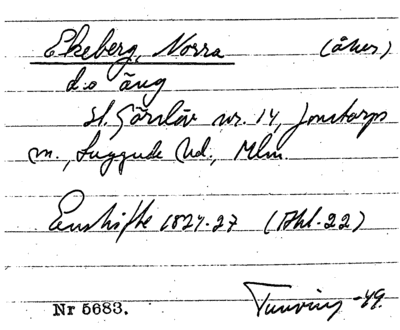 Ekeberg, Norra (åker)
d:o äng
St. Görslöv nr. 14, Jonstorps
sn., Luggude hd., Mlm.
Enskifte 1824-27 (Akt. 22)
Nr 5683. Tunving -49.